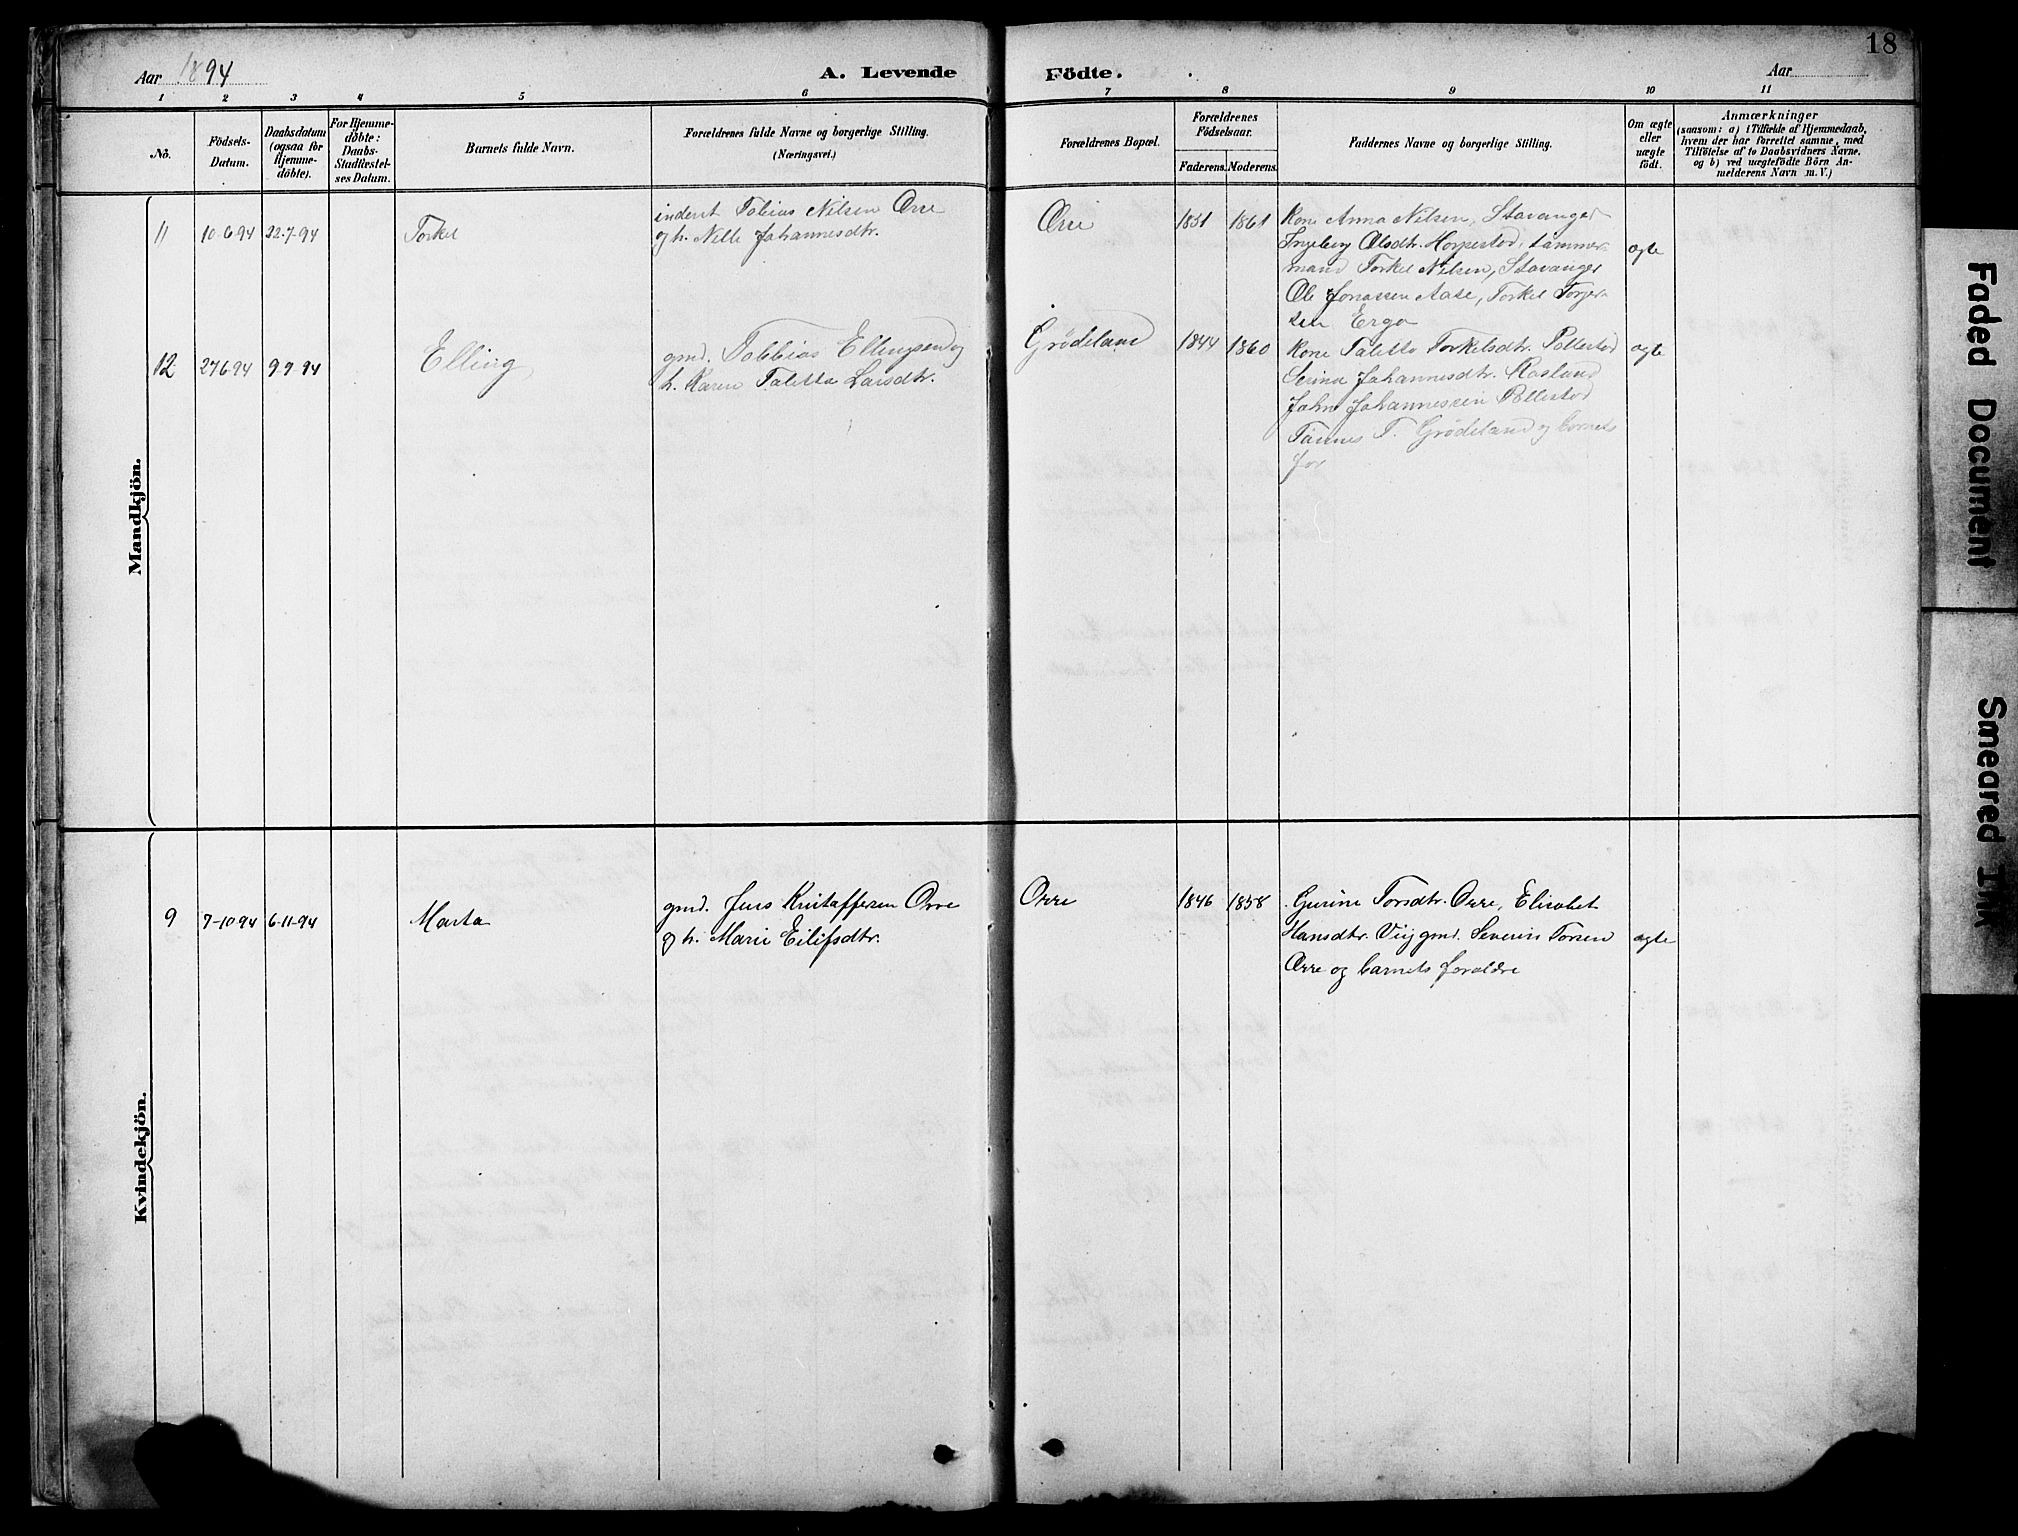 18
Aar 1894
A. Levende Födte.
Aar
1 2 3 4 5 6 7 8 9 10 11
No.
Födsels-
Datum.
Daabsdatum
(ogsaa for
Hjemme-
döbte).
For Hjemme-
döbte:
Daabs-
Stadfestel-
ses Datum.
Barnets fulde Navn.
Forældrenes fulde Navne og borgerlige Stilling.
(Næringsvei.)
Forældrenes Bopæl.
Forældrenes
Födselsaar.
Faderens. Moderens.
Faddernes Navne og borgerlige Stilling.
Om ægte
eller
uægte
födt.
Anmærkninger
(saasom: a) i Tilfælde af Hjemmedaab,
hvem der har forrettet samme, med
Tilföielse af to Daabsvidners Navne.
og b) ved uægtefödte Börn An-
melderens Navn m. V.)
Mandkjön.
11 10-6-94 22-7-94 Torkel
inderst Tobias Nilsen Orre
og h. Nille Johannesdtr.
Orre 1851 1861
Kone Anna Nilsen, Stavanger
Ingeborg Olsdtr. Horpestad, tømmer-
mand Torkel Nilsen, Stavanger
Ole Jonassen Aase, Torkel Torger-
sen Erga
ægte
12 27-6-94 9-9-94 Elling
gmd. Tobbias Ellingsen og
h. Karen Taletta Larsdtr.
Grødeland 1844 1860
Kone Taletta Torkelsdtr. Pollestad
Serina Johannesdtr. Rosland
John Johannessen Pollestad
Tønnes T. Grødeland og barnets
far
ægte
Kvindekjön.
9 7-10-94 6-11-94 Marta
gmd. Jens Kristoffersen Orre
og h. Marie Eilifsdtr.
Orre 1846 1858
Gurine Torsdtr. Orre, Elisabet
Hansdtr. Vig gmd. Severin Torsen
Orre og barnets forældre
ægte
Faded Document
Smeared Ink